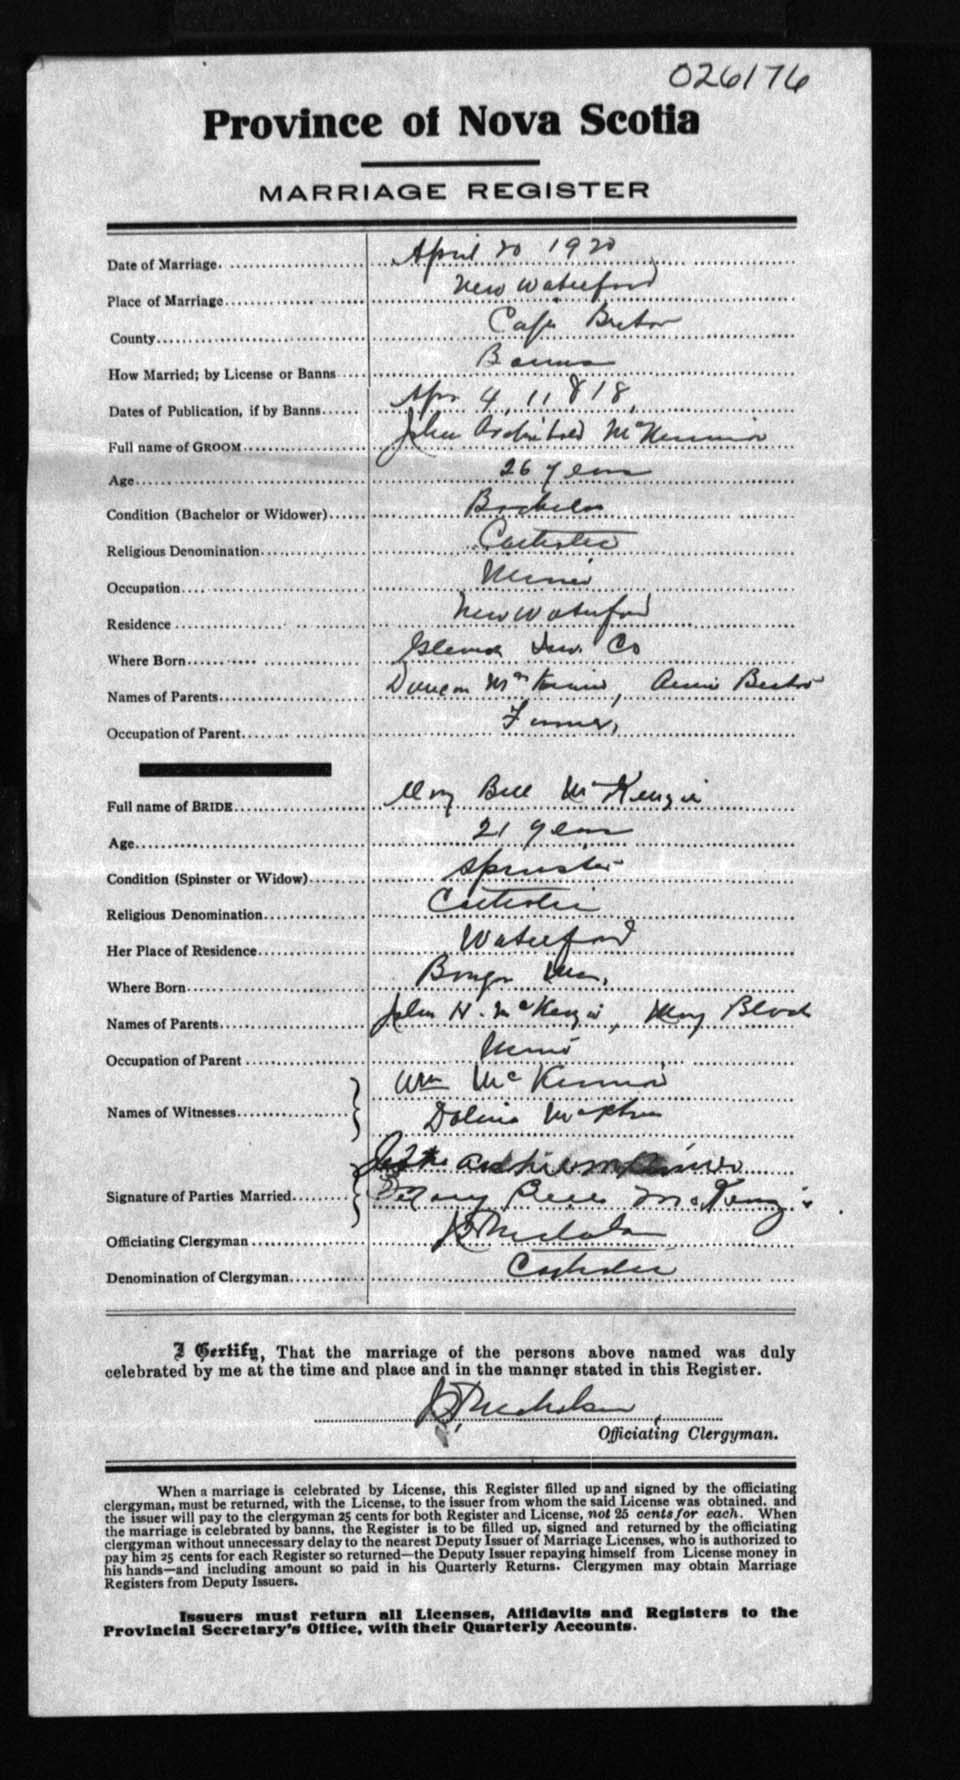 026176
Province of Nova Scotia
MARRIAGE REGISTER
Date of Marriage. April 20 1920
Place of Marriage New Waterford
County Cape Breton
How Married; by License or Banns Banns
Dates of Publication, if by Banns Apr 4, 11 & 18,
Full name of GROOM John Archibald McKinnon
Age 26 years
Condition (Bachelor or Widower) Bachelor
Religious Denomination Catholic
Occupation Miner
Residence New Waterford
Where Born Inv. Co
Names of Parents Duncan McKinnon, Annie Beaton
Occupation of Parent Farmer,
Full name of BRIDE Mary Bell McKenzie
Age 21 years
Condition (Spinster or Widow) Spinster
Religious Denomination Catholic
Her Place of Residence Waterford
Where Born
Names of Parents John H. McKenzie, Mary
Occupation of Parent Miner
Names of Witnesses Wm McKinnon
McPhee
Signature of Parties Married
Mary Bell McKenzie
Officiating Clergyman Nicholson
Denomination of Clergyman Catholic
I Certify, That the marriage of the persons above named was duly
celebrated by me at the time and place and in the manner stated in this Register.
Nicholson
Officiating Clergyman.
When a marriage is celebrated by License, this Register filled up and signed by the officiating
clergyman, must be returned, with the License, to the issuer from whom the said License was obtained, and
the issuer will pay to the clergyman 25 cents for both Register and License, not 25 cents for each. When
the marriage is celebrated by banns, the Register is to be filled up, signed and returned by the officiating
clergyman without unnecessary delay to the nearest Deputy Issuer of Marriage Licenses, who is authorized to
pay him 25 cents for each Register so returned—the Deputy Issuer repaying himself from License money in
his hands—and including amount so paid in his Quarterly Returns. Clergymen may obtain Marriage
Registers from Deputy Issuers.
Issuers must return all Licenses, Affidavits and Registers to the
Provincial Secretary's Office, with their Quarterly Accounts.